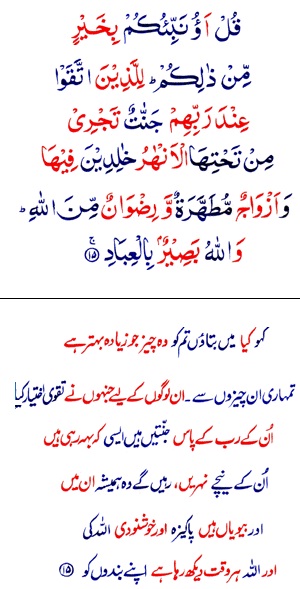 قُلْ اَؤُنَبِّئُكُمْ بِخَيْرٍ
مِّنْ ذٰلِكُمْ ؕ لِلَّذِيْنَ اتَّقَوْا
عِنْدَ رَبِّهِمْ جَنّٰتٌ تَجْرِىْ
مِنْ تَحْتِهَا الْاَنْهٰرُ خٰلِدِيْنَ فِيْهَا
وَاَزْوَاجٌ مُّطَهَّرَةٌ وَّرِضْوَانٌ مِّنَ اللّٰهِ ؕ
وَاللّٰهُ بَصِيْرٌۢ بِالْعِبَادِ ۚ ﴿۱۵﴾
کہو کیا میں بتاؤں تم کو وہ چیز جو زیادہ بہتر ہے
تمہاری ان چیزوں سے ۔ ان لوگوں کے لیے جنہوں نے تقویٰ اختیار کیا
اُن کے رب کے پاس جنّتیں ہیں ایسی کہ بہہ رہی ہیں
اُن کے نیچے نہریں، رہیں گے وہ ہمیشہ ان میں
اور بیویاں ہیں پاکیزہ اور خوشنودی اللہ کی
اور اللہ ہر وقت دیکھ رہا ہے اپنے بندوں کو ﴿۱۵﴾